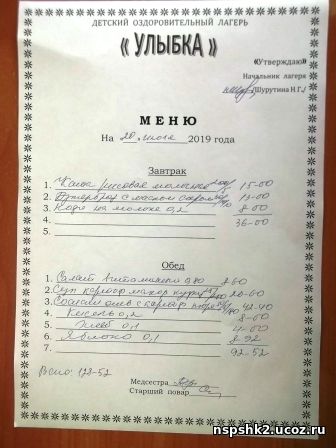 ДЕТСКИЙ ОЗДОРОВИТЕЛЬНЫЙ ЛАГЕРЬ
« УЛЫБКА »
«Утверждаю»
Начальник лагеря
/Шурутина Н.Г./
МЕНЮ
На 20 июня 2019 года
Завтрак
1. Каша рисовая молочная 15-00
2. Бутерброд с маслом сыром 13-00
3. Кофе на молоке 0,2 8-00
4. 36-00
5.
Обед
1. Салат витаминный 7-60
2. Суп картоф макар куры 20-60
3. 42-40
4. Кисель 0,2 8-00
5. Хлеб 0,1 4-00
6. Яблоко 0,1 8-92
7. 92-52
Всего: 128-52
Медсестра
Старший повар
nspshk2.ucoz.ru